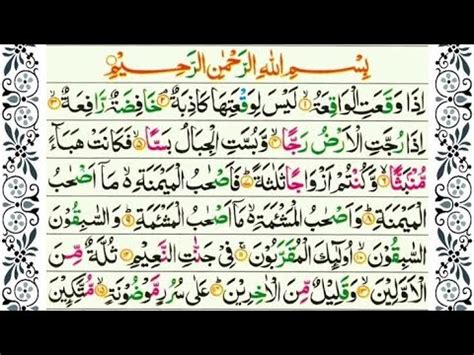 بِسْمِ اللهِ الرَّحْمٰنِ الرَّحِيْمِ
اِذَا وَقَعَتِ الْوَاقِعَةُ ۙ‏﴿۱﴾ لَيْسَ لِوَقْعَتِهَا كَاذِبَةٌ ۘ‏﴿۲﴾ خَافِضَةٌ رَّافِعَةٌ ۙ‏﴿۳﴾
اِذَا رُجَّتِ الْاَرْضُ رَجًّا ۙ‏﴿۴﴾ وَّبُسَّتِ الْجِبَالُ بَسًّا ۙ‏﴿۵﴾ فَكَانَتْ هَبَآءً
مُّنْۢبَثًّا ۙ‏﴿۶﴾ وَّكُنْتُمْ اَزْوَاجًا ثَلٰثَةً ؕ‏﴿۷﴾ فَاَصْحٰبُ الْمَيْمَنَةِ ۙ مَاۤ اَصْحٰبُ
الْمَيْمَنَةِ ؕ‏﴿۸﴾ وَاَصْحٰبُ الْمَشْـَٔمَةِ ۙ مَاۤ اَصْحٰبُ الْمَشْـَٔمَةِ ؕ‏﴿۹﴾ وَالسّٰبِقُوْنَ
السّٰبِقُوْنَ ۚ‏﴿۱۰﴾ اُولٰٓئِكَ الْمُقَرَّبُوْنَ ۚ‏﴿۱۱﴾ فِيْ جَنّٰتِ النَّعِيْمِ ‏﴿۱۲﴾ ثُلَّةٌ مِّنَ
الْاَوَّلِيْنَ ۙ‏﴿۱۳﴾ وَقَلِيْلٌ مِّنَ الْاٰخِرِيْنَ ؕ‏﴿۱۴﴾ عَلٰى سُرُرٍ مَّوْضُوْنَةٍ ۙ‏﴿۱۵﴾ مُّتَّكِـِٕيْنَ